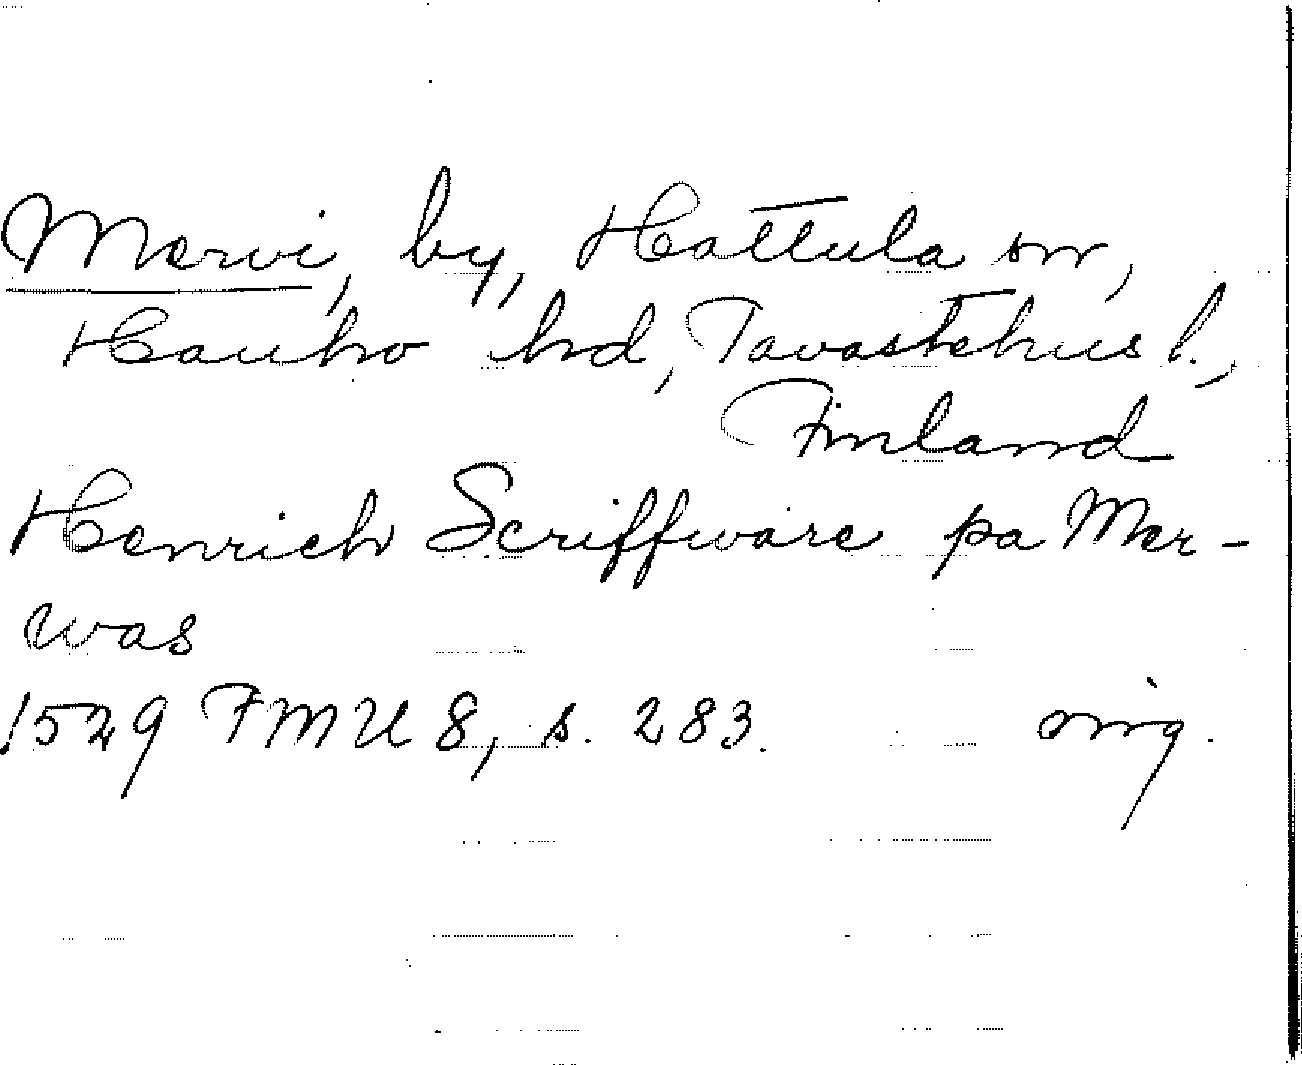 Mervi, by, Hattula sn,
Hauho hd, Tavastehus l.,
Finland
Henrich Scriffware pa Mer-
was
1529 FMU 8, s. 283. orig.